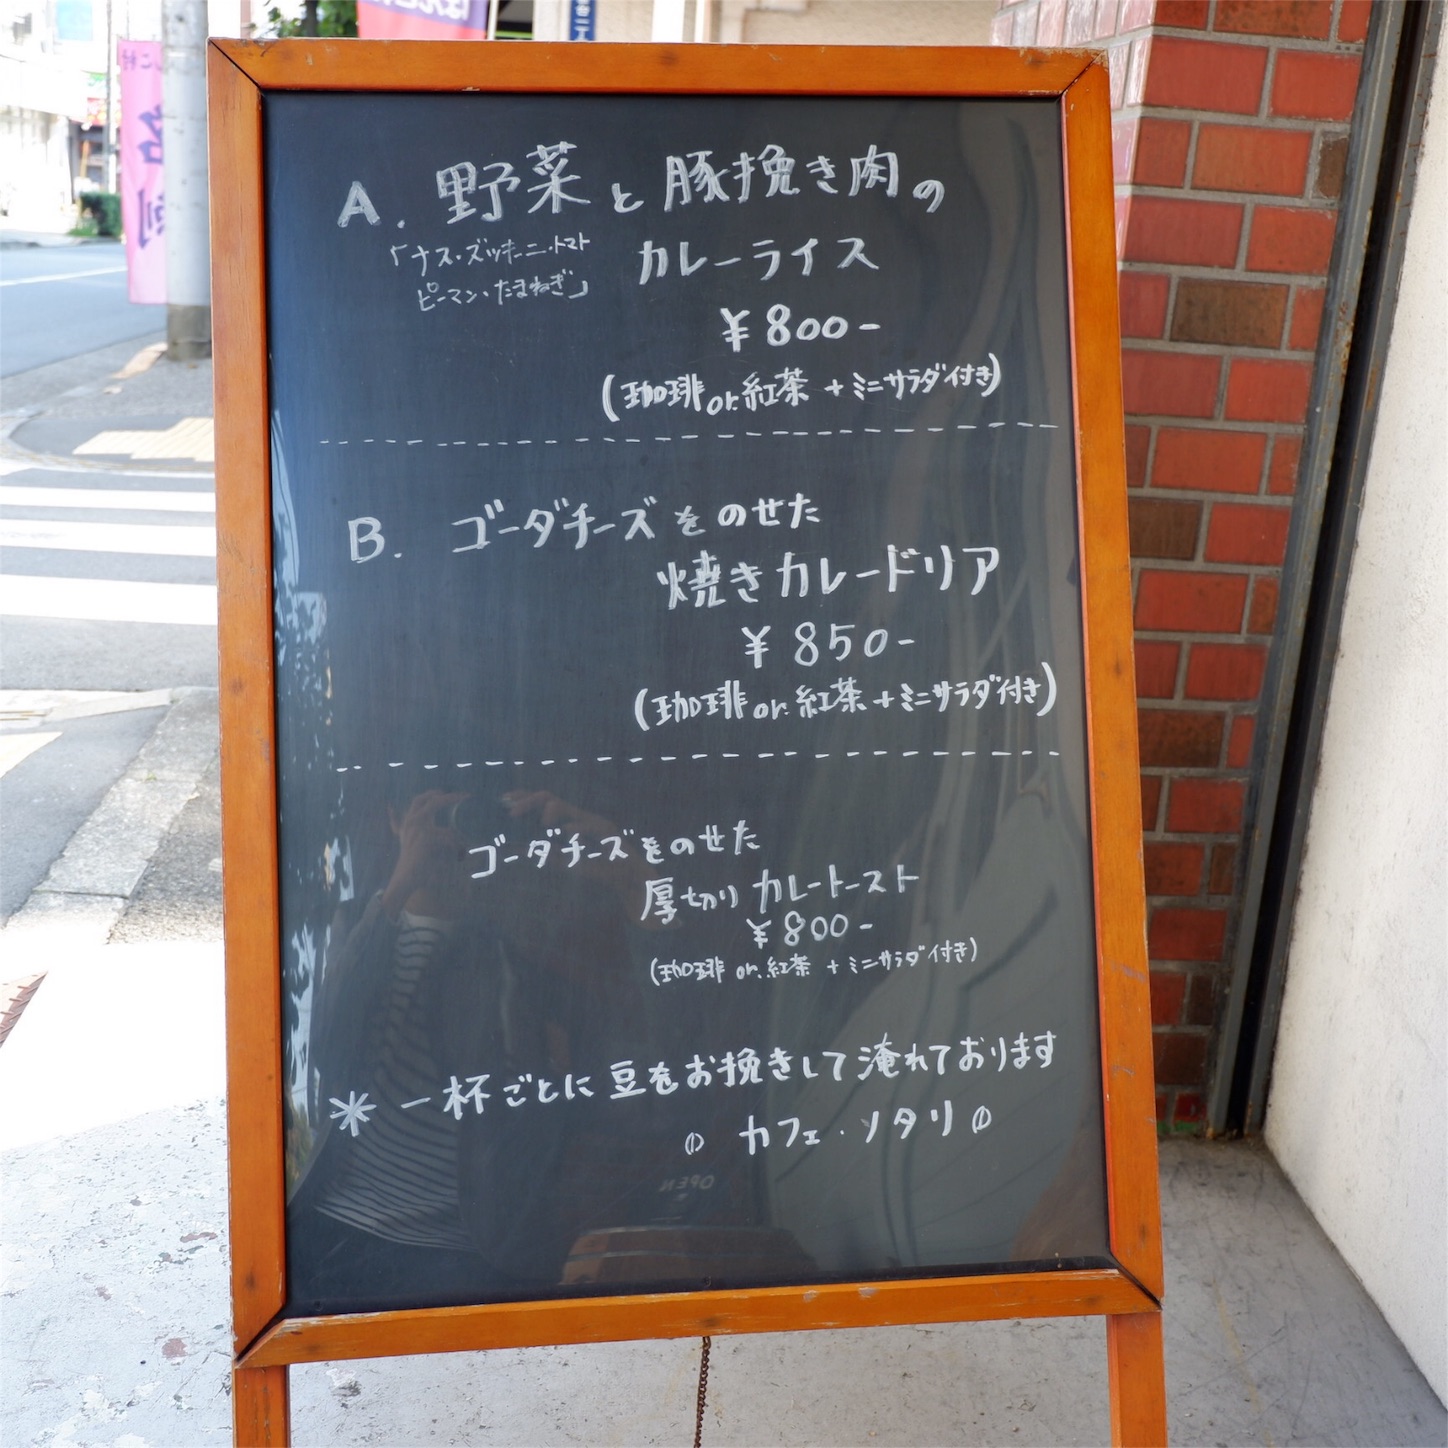 A. 野菜と豚挽き肉の
「ナス・ズッキーニ・トマト
ピーマン・たまねぎ」
カレーライス
¥800-
(珈琲or.紅茶 + ミニサラダ付き)
B. ゴーダチーズをのせた
焼きカレードリア
¥850-
(珈琲or.紅茶+ミニサラダ付き)
ゴーダチーズをのせた
厚切りカレートースト
¥800-
(珈琲 or.紅茶 + ミニサラダ付き)
* 一杯ごとに豆をお挽きして淹れております
カフェ・ノタリ
OPEN